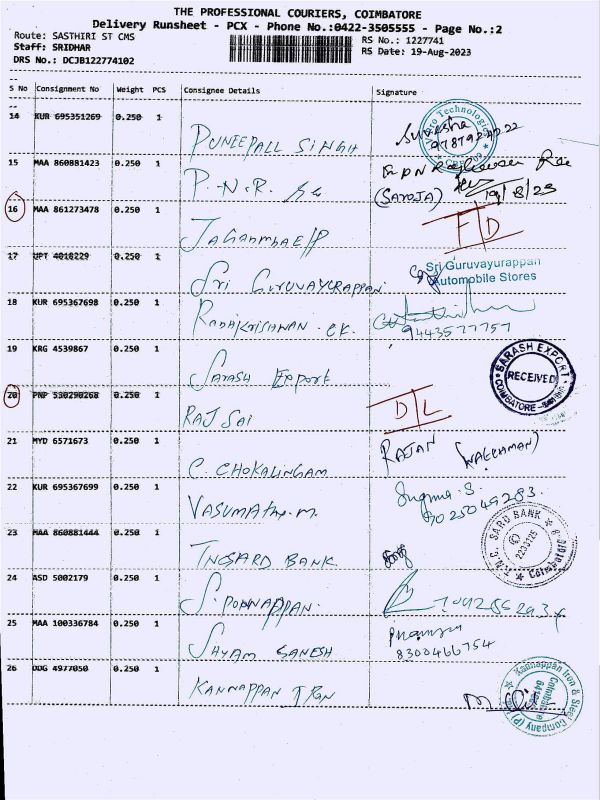 THE PROFESSIONAL COURIERS, COIMBATORE
Delivery Runsheet - PCX - Phone No.:0422-3505555 - Page No.:2
Route: SASTHIRI ST CMS
RS No.: 1227741
Staff: SRIDHAR
RS Date: 19-Aug-2023
DRS No.: DCJB122774102
S No Consignment No Weight PCS Consignee Details Signature
14 KUR 695351269 0.250 1
PUNEEPALL SINGH
15 MAA 860881423 0.250 1
P.N.R.
(SAROJA) 19/8/23
16 MAA 861273478 0.250 1
F/D
17 UPT 4018229 0.250 1
Sri GURUVAYURAPPAN
Sri Guruvayurappan
Automobile Stores
18 KUR 695367698 0.250 1
RADAKRISHNAN
9443577757
19 KRG 4539867 0.250 1
SARASH EXPORT
SARASH EXPORT
RECEIVED
COIMBATORE
20 PNP 530290268 0.250 1
RAJ SAI
D/L
21 MYD 6571673 0.250 1
C. CHOKALINGAM
RAJAN (WATCHMAN)
22 KUR 695367699 0.250 1
VASUMAthy.M.
Suguna.S.
23 MAA 860881444 0.250 1
TNGSARD BANK
T.N.G. SARD BANK
Coimbatore
24 ASD 5002179 0.250 1
S. PONNAPPAN
25 MAA 100336784 0.250 1
SHYAM GANESH
8300466754
26 DDG 4977050 0.250 1
KANNAPPAN IRON
Kannappan Iron & Steel Company (P)